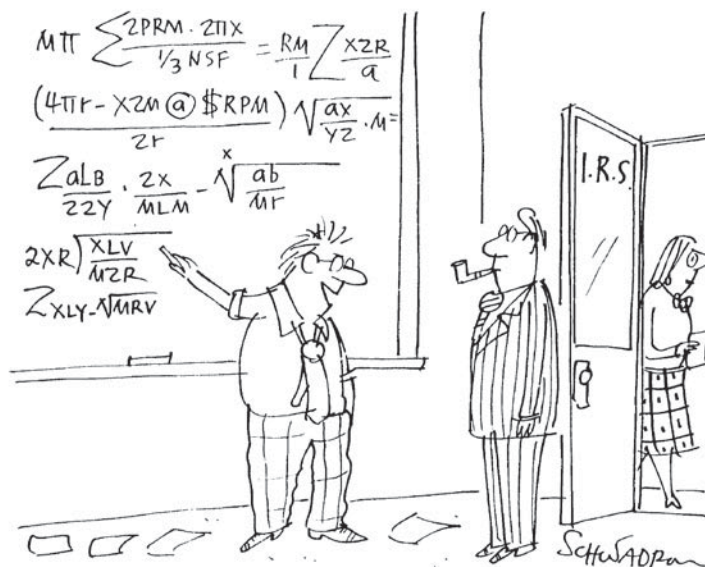 Mπ Σ 2PRM · 2πX / 1/3 NSF = RM / 1 Z XZR / a
(4πr - XZM @ $RPM) / 2r √ax / YZ · M =
Z aLB / 22Y · 2X / MLM - x√ab / Mr
2XR)XLV / MZR
Z XLY - √MRV
I.R.S.
SCHWADRON